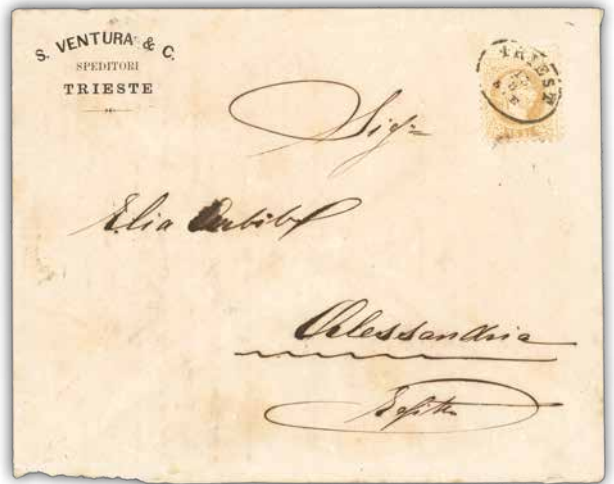 S. VENTURA & C.
SPEDITORI
TRIESTE
TRIEST
Sigr
Elia
Alessandria
Egitto